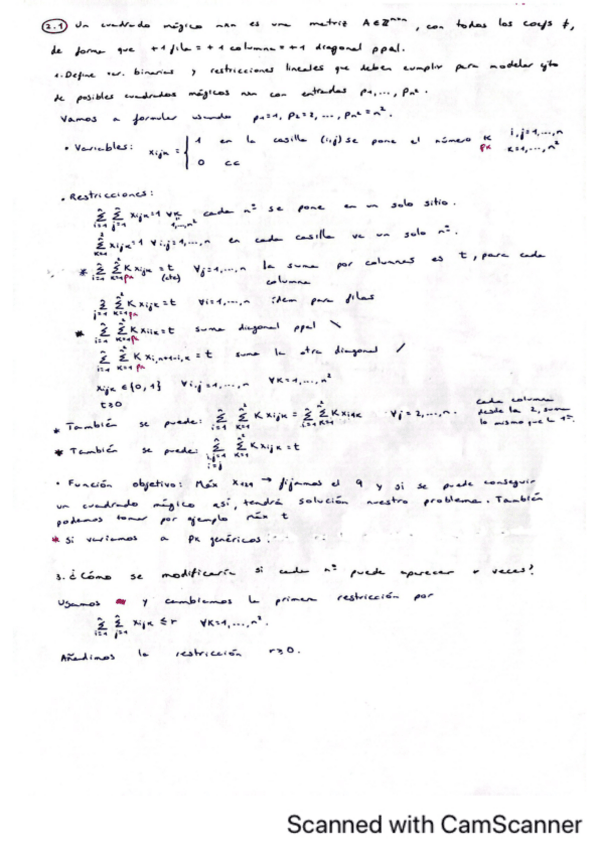 2.1) Un cuadrado mágico nxn es una matriz A∈Z^{nxn}, con todos los coefs ≠,
de forma que + 1 fila = + 1 columna = + 1 diagonal ppal.
1. Define var. binarias y restricciones lineales que deben cumplir para modelar cjto
de posibles cuadrados mágicos nxn con entradas p₁, ..., pₙ².
Vamos a formular usando p₁=1, p₂=2, ..., pₙ²=n².
• Variables: x_{ijk} = { 1 en la casilla (i,j) se pone el número k i,j=1,...,n
0 cc pk k=1,...,n²
• Restricciones:
Σ_{i=1}^{n} Σ_{j=1}^{n} x_{ijk}=1 ∀k=1,...,n² cada nº se pone en un solo sitio.
Σ_{k=1}^{n²} x_{ijk}=1 ∀i,j=1,...,n en cada casilla va un solo nº.
* Σ_{i=1}^{n} Σ_{k=1}^{n²} K x_{ijk} = t (cte) ∀j=1,...,n la suma por columnas es t, para cada
pk columna
Σ_{j=1}^{n} Σ_{k=1}^{n²} K x_{ijk} = t ∀i=1,...,n ídem para filas
pk
* Σ_{i=1}^{n} Σ_{k=1}^{n²} K x_{iik} = t suma diagonal ppal \
pk
Σ_{i=1}^{n} Σ_{k=1}^{n²} K x_{i,n+1-i,k} = t suma la otra diagonal /
pk
x_{ijk} ∈ {0,1} ∀i,j=1,...,n ∀k=1,...,n²
t≥0
* También se puede: Σ_{i=1}^{n} Σ_{k=1}^{n²} K x_{ijk} = Σ_{i=1}^{n} Σ_{k=1}^{n²} K x_{i1k} ∀j=2,...,n. cada columna
desde la 2, suma
lo mismo que la 1ª
* También se puede: Σ_{i,j=1, i=j}^{n} Σ_{k=1}^{n²} K x_{ijk} = t
• Función objetivo: Máx x₁₁₉ → fijamos el 9 y si se puede conseguir
un cuadrado mágico así, tendrá solución nuestro problema. También
podemos tomar por ejemplo máx t
* Si variamos a pk genéricos:
3. ¿Cómo se modificaría si cada nº puede aparecer r veces?
Usamos y cambiamos la primera restricción por
Σ_{i=1}^{n} Σ_{j=1}^{n} x_{ijk} ≤ r ∀k=1,...,n².
Añadimos la restricción r≥0.
Scanned with CamScanner